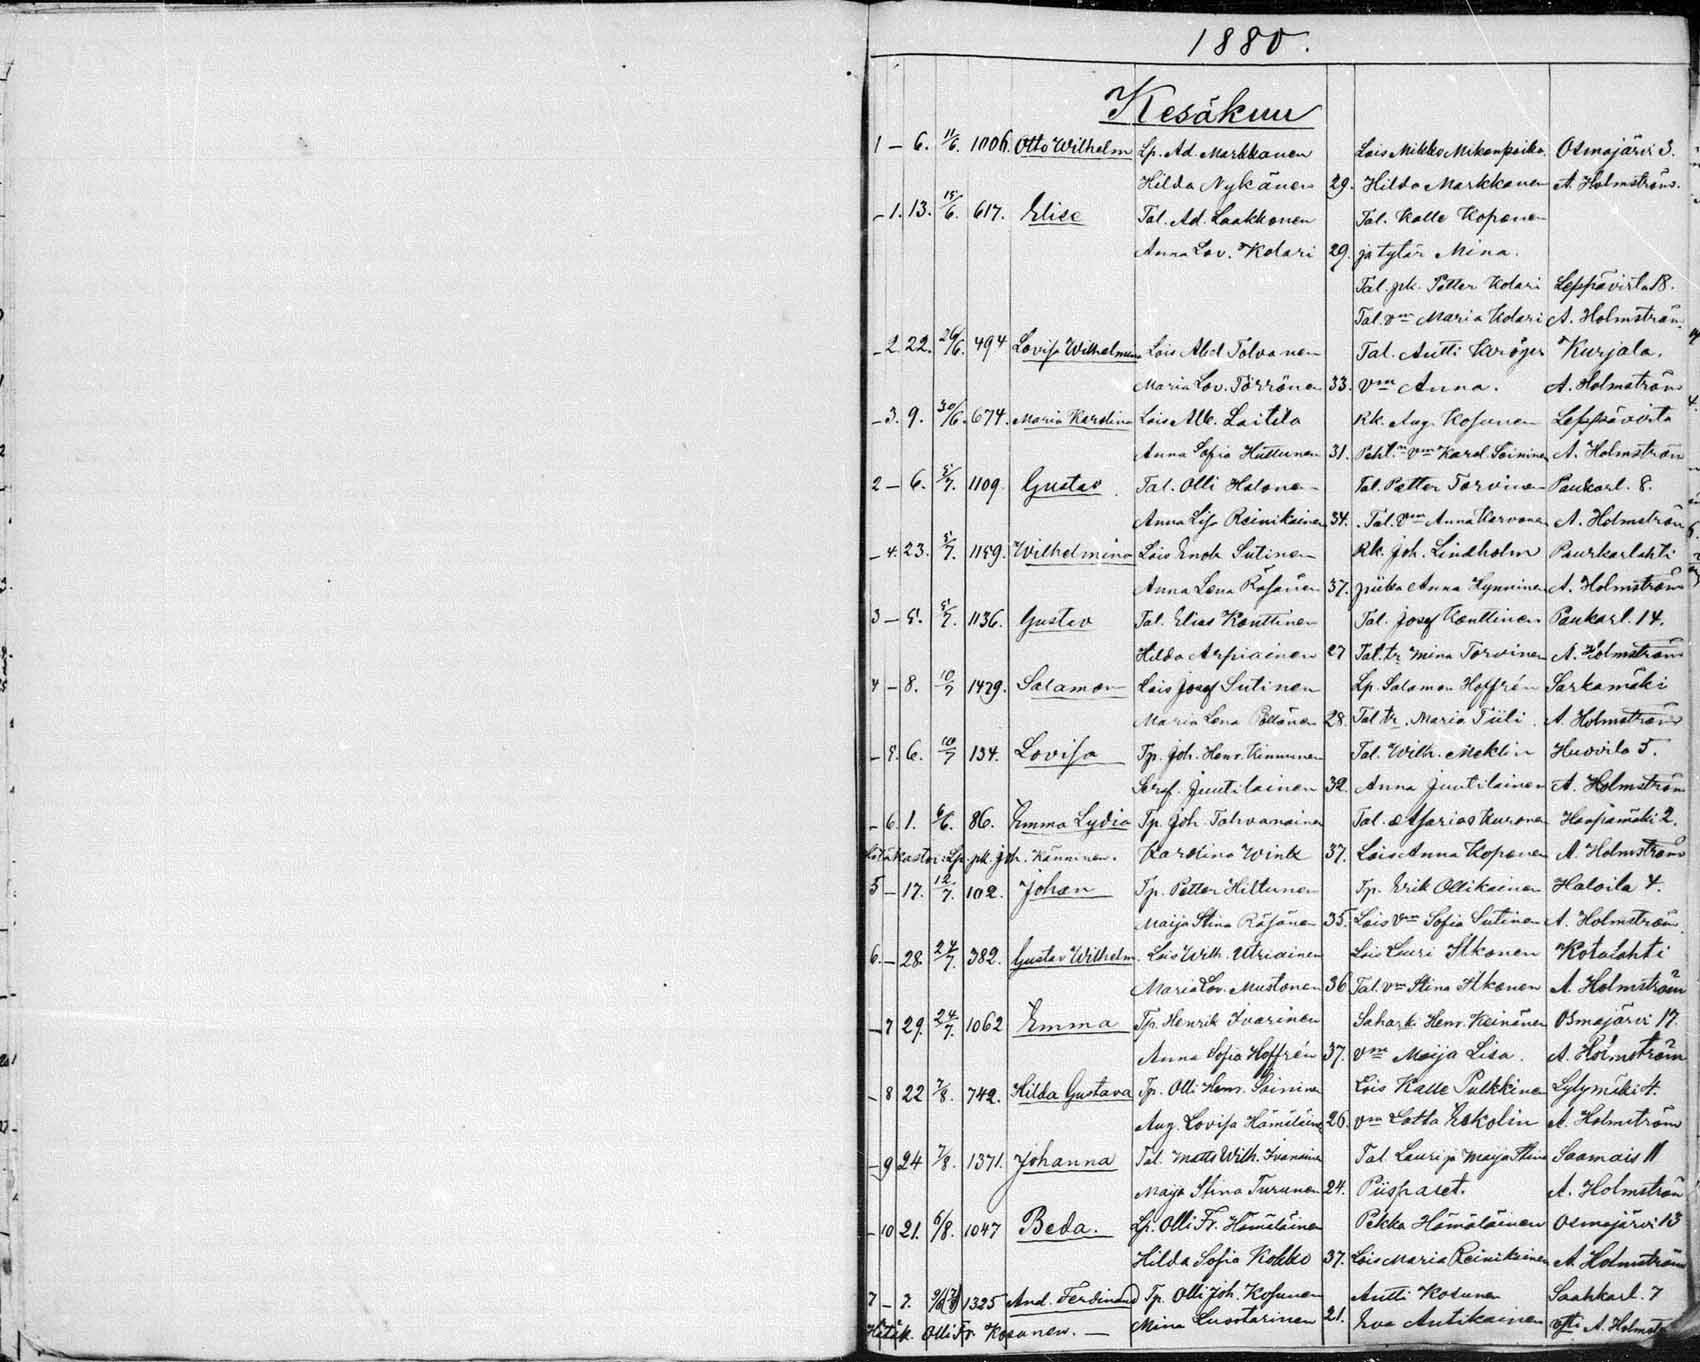 1880.
Kesäkuu
1 - 6. 11/6. 1006. Otto Wilhelm Lp. Ad. Markkanen Lois Mikko Mikonpoika. Osmajärvi 3.
Hilda Nykänen 29. Hilda Markkanen A. Holmström.
- 1. 13. 15/6. 617. Elise Tal. Ad. Laakkonen Tal. Kalle Koponen
Anna Lov. Kolari 29. ja tytär Mina.
Tal. pk. Petter Kolari Leppävirta 18.
Tal. vm Maria Kolari A. Holmström
- 2. 22. 26/6. 494 Lovisa Wilhelmina Lois Abel Tolvanen Tal. Antti Kröger Kurjala.
Maria Lov. Törrönen 33. vm Anna. A. Holmström
- 3. 9. 30/6. 674. Maria Karolina Lois Alb. Laitila Rk. Aug. Kosunen Leppävirta
Anna Sofia Huttunen 31. vm Karol. Soininen A. Holmström
2 - 6. 5/7. 1109. Gustav Tal. Olli Halonen Tal. Petter Torvinen Paukarl. 8.
Anna Lisa Reinikainen 34. Tal. vm Anna Karvonen A. Holmström
- 4. 23. 5/7. 1159. Wilhelmina Lois Enok Sutinen Rk. Joh. Lindholm Paukarlahti
Anna Lena Räsänen 37. piika Anna Hynninen A. Holmström
3 - 5. 5/7. 1136. Gustav Tal. Elias Konttinen Tal. Josef Konttinen Paukarl. 14.
Hilda Arpiainen 27 Tal. tr Mina Torvinen A. Holmström
4 - 8. 10/7 1429. Salamon Lois Josef Sutinen Lp. Salamon Hoffrén Sarkamäki
Maria Lena Pöllänen 28. Tal tr. Maria Tiili. A. Holmström
- 5. 6. 10/7 134. Lovisa Tp. Joh. Henr. Kinnunen Tal. Wilh. Meklin Huovila 5.
Seraf. Juutilainen 32. Anna Juutilainen A. Holmström
- 6. 1. 6/6. 86. Emma Lydia Tp. Joh. Tahvanainen Tal. Asarias Kuronen Haapamäki 2.
Hätäkastoi: Lp. pk. Joh. Känninen. Karolina Wink 37. Lois Anna Koponen A. Holmström
5 - 17. 12/7. 102. Johan Tp. Petter Hiltunen Tp. Erik Ollikainen Haloila 4.
Maija Stina Räsänen 35. Lois vm Sofia Sutinen A. Holmström.
6. - 28. 24/7. 382. Gustav Wilhelm. Lois Wilh. Utriainen Lois Lauri Ikonen Kotalahti
Maria Lov. Mustonen 36 Tal. vm Stina Ikonen A. Holmström
- 7 29. 24/7. 1062 Emma Tp. Henrik Ivarinen Henr. Keinänen Osmajärvi 17.
Anna Sofia Hoffrén 37. vm Maija Lisa. A. Holmström
- 8 22 7/8. 742. Hilda Gustava Tp. Olli Henr. Soininen Lois Kalle Pulkkinen 4.
Aug. Lovisa Hämäläinen 26. vm Lotta Eskolin A. Holmström
- 9 24 7/8. 1371. Johanna Tal. Matts Wilh. Ivanainen Tal Lauri ja Maija Stina Saamais 11
Maija Stina Turunen 24. Piispaset. A. Holmström
- 10 21. 6/8. 1047 Beda. Lp. Olli Fr. Hämäläinen Pekka Hämäläinen Osmajärvi 13
Hilda Sofia Kokko 37. Lois Maria Reinikainen A. Holmström
7 - 7. 1325 And. Ferdinand Tp. Olli Joh. Kosunen Antti Kosunen Saahkarl. 7
Hätäk. Olli Fr. Kosunen. — Mina Luostarinen 21. Eva Antikainen A. Holmstr